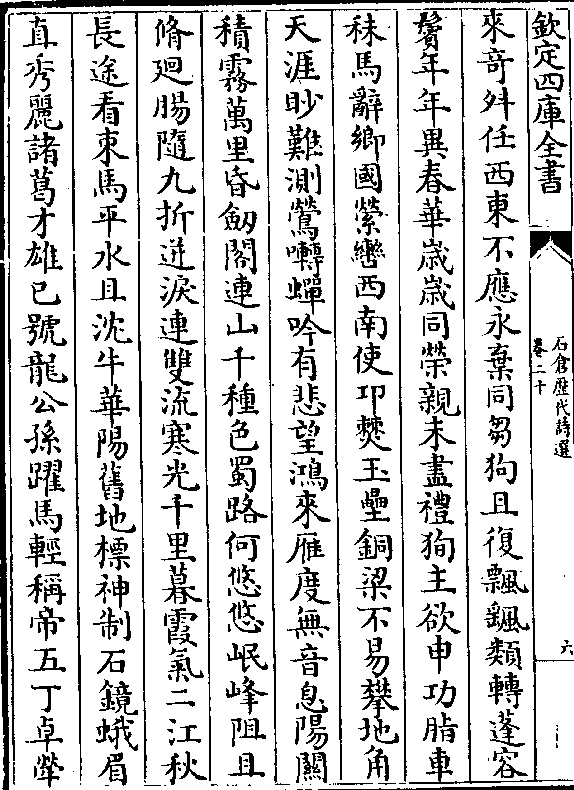 欽定四庫全書
石倉歷代詩選
卷二十
六
來竒舛任西東不應永棄同芻狗且復飄飖類轉蓬容
鬢年年異春華歲歲同榮親未盡禮狥主欲申功脂車
秣馬辭鄉國縈轡西南使卭僰玉壘銅梁不易攀地角
天涯眇難測鶯囀蟬吟有悲望鴻來雁度無音息陽關
積霧萬里昏劔閣連山千種色蜀路何悠悠岷峰阻且
脩廻腸隨九折迸淚連雙流寒光千里暮霞氣二江秋
長途看束馬平水且沈牛華陽舊地標神制石鏡蛾眉
真秀麗諸葛才雄已號龍公孫躍馬輕稱帝五丁卓犖